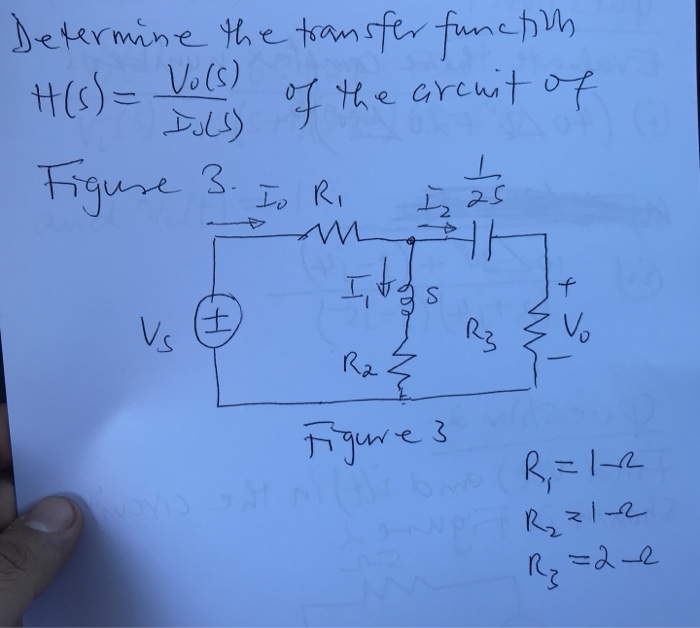 Determine the transfer function
H(s) = Vo(s) / Io(s) of the circuit of
Figure 3.
Io R1 I2 1/2s
I1 s
Vs R2 R3 + Vo −
Figure 3
R1 = 1-Ω
R2 = 1-Ω
R3 = 2-Ω